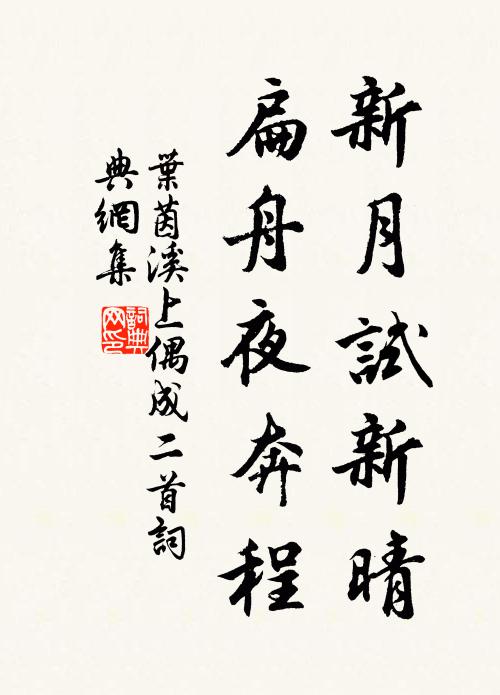 新月試新晴
扁舟夜奔程
葉茵溪上偶成二首詞
典網集
詞典
网印